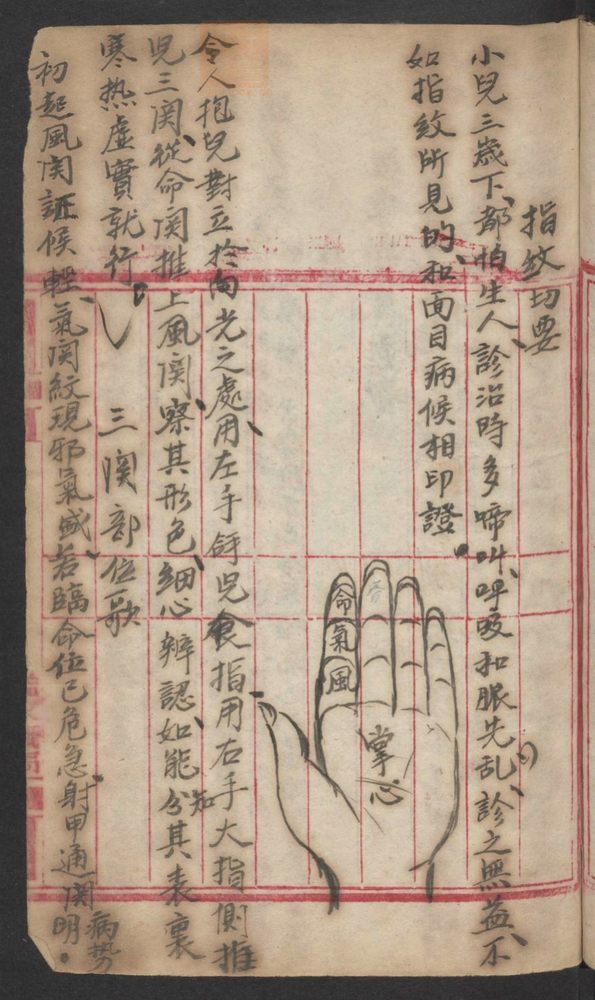 指紋切要
小兒三歲下、都怕生人、診治時多啼叫、呼吸和脈先乱、診之無益、不
如指紋所見的、和面目病候相印證。
命
氣
風
掌心
令人抱兒對立於向光之處、用左手𢪛兒食指、用右手大指側推
兒三関、從命関推上風関、察其形色、細心辨認、如能分知其表裏
寒热虛實就行。
三関部位歌
初起風関証候輕、氣関紋現邪氣盛、若臨命位已危急、射甲通関病势明。